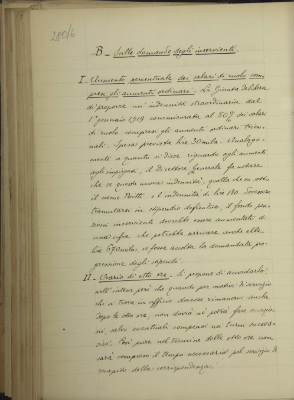 280/6
B - Sulle domande degli inservienti.
I - Aumento percentuale dei salari di ruolo com-
presi gli aumenti ordinari. - La Giunta delibera
di proporre un'indennità straordinaria dal
1° gennaio 1919 commisurata al 50% dei salari
di ruolo compresi gli aumenti ordinari trien-
nali. Spesa prevista lire 30 mila. Analoga-
mente a quanto si disse riguardo agli aumenti
agli impiegati, il Direttore Generale fa notare
che se questa nuova indennità, quella che va sotto
il nome e l'indennità di lire 180 dovessero
tramutarsi in stipendio definitivo, il fondo pen-
sioni inservienti dovrebbe essere aumentato di
una cifra che potrebbe arrivare anche alle
lire 670 mila, se fosse accolta la domandata pro-
gressione degli stipendi.
II - Orario di otto ore. - Si propone di accordarlo;
resti inteso però che quando per motivi di servizio
chi si trova in ufficio dovesse rimanervi anche
dopo le otto ore, non dovrà nè potrà fare eccezio-
ni, salvo eventuali compensi nei turni success-
sivi. Così pure nel termine delle otto ore non
sarà compreso il tempo necessario pel servizio di
recapito della corrispondenza.